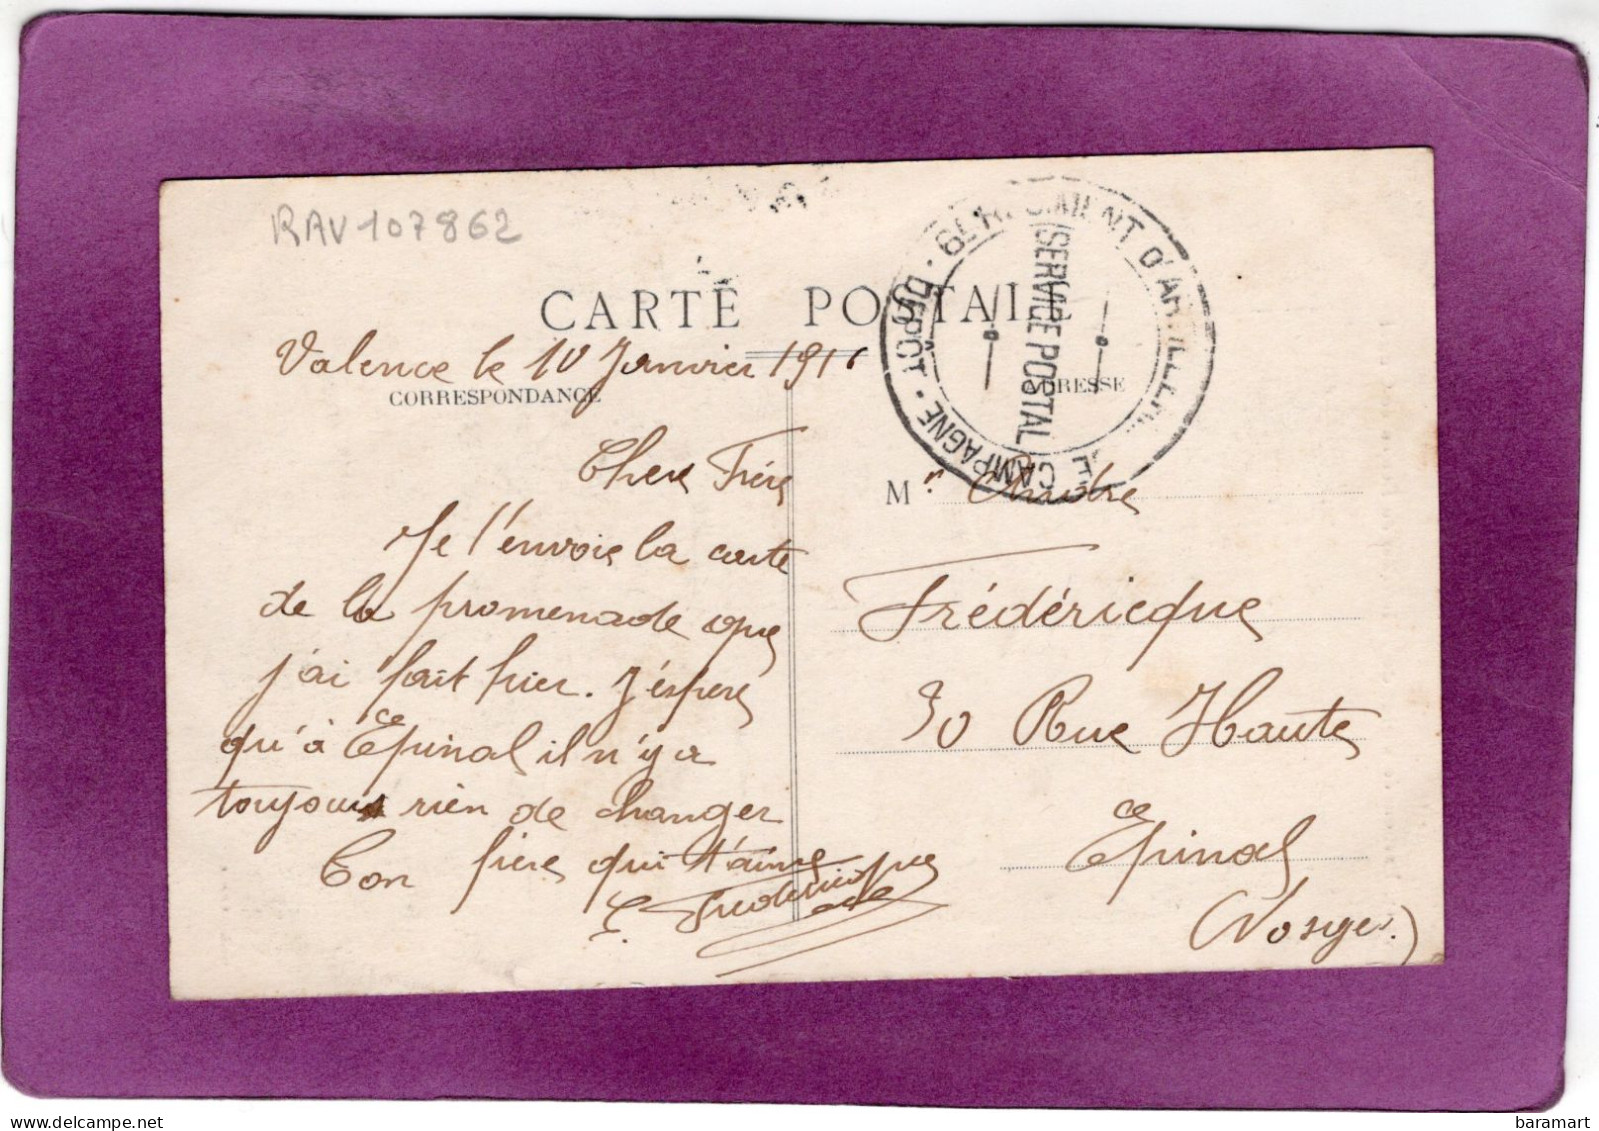 RAV 107862
CARTE POSTALE
Valence le 10 Janvier 1916
CORRESPONDANCE
ADRESSE
6E RÉGIMENT D'ARTILLERIE DE CAMPAGNE • DÉPÔT •
SERVICE POSTAL
Cher Frère
Je t'envoie la carte
de la promenade que
j'ai fait hier. J'éspère
qu'à Epinal il n'y a
toujours rien de changer
Ton frère qui t'aime
Fredericque
Mr. Andre
Frédéricque
30 Rue Haute
Epinal
(Vosges)
delcampe.net
baramart